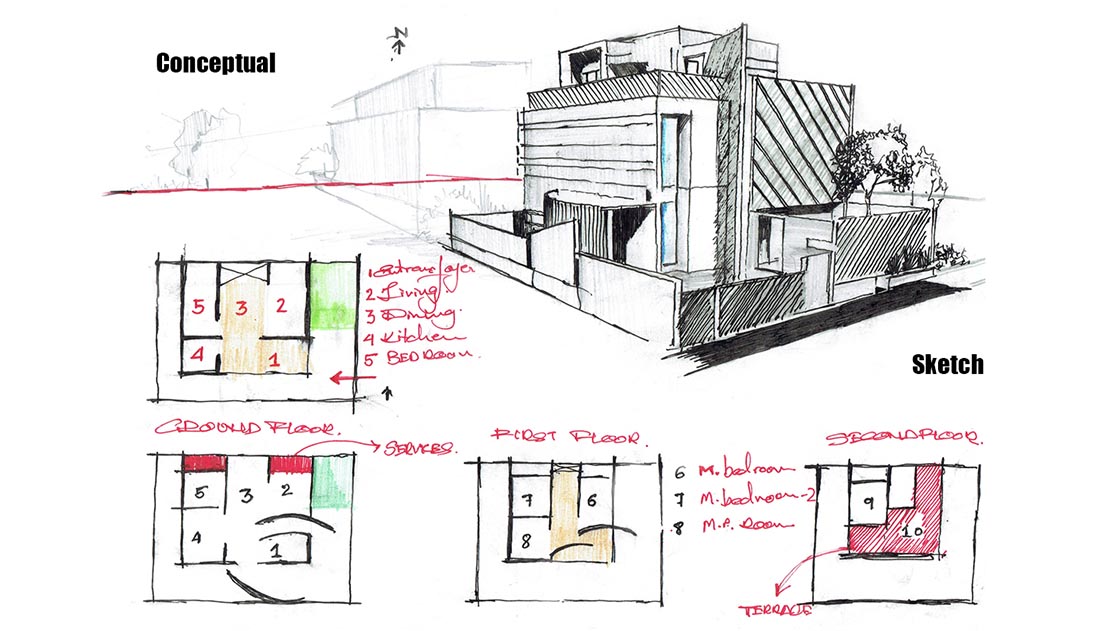 Conceptual
N
1 Entrance foyer
2 Living
3 Dining.
4 Kitchen
5 BEDROOM.
5 3 2
4 1
Sketch
GROUND FLOOR.
SERVICES.
FIRST FLOOR.
SECOND FLOOR.
5 3 2
4 1
7 6
8
6 M. bedroom
7 M. bedroom-2
8 M.P. Room
9
10
TERRACE